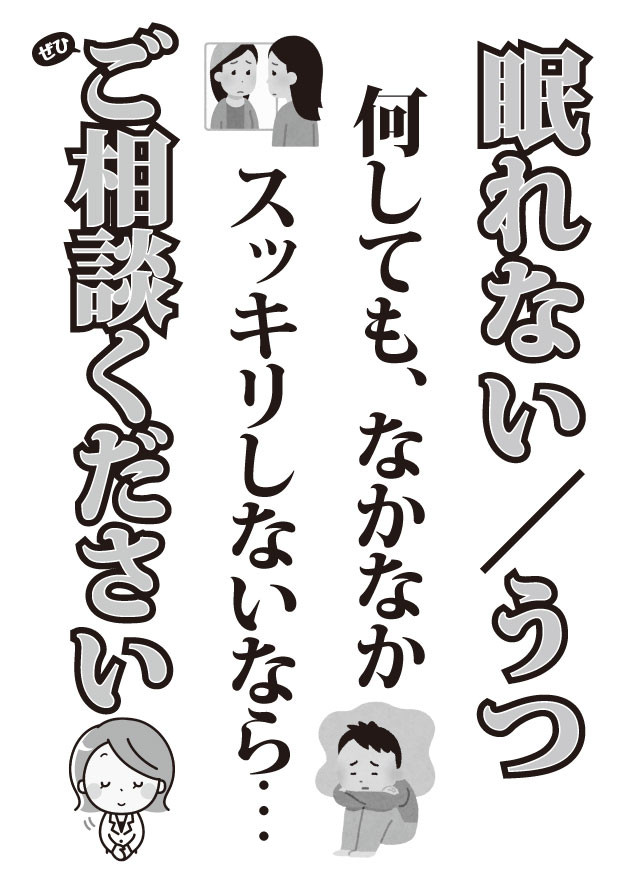 眠れない／うつ
何しても、なかなか
スッキリしないなら…
ぜひ
ご相談ください